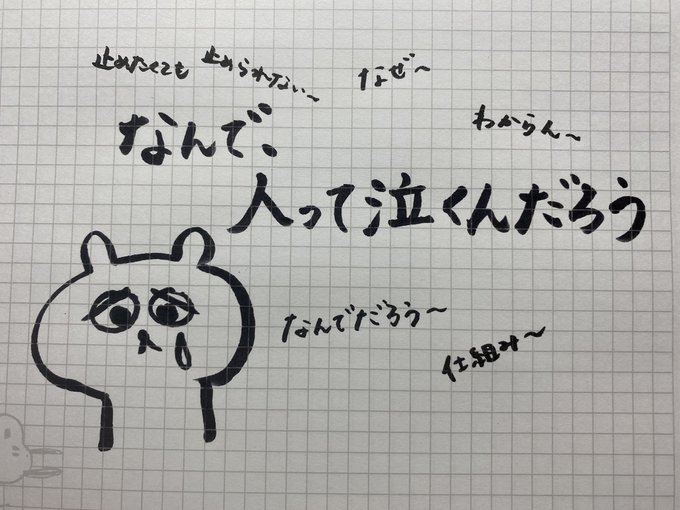 止めたくても 止められない〜
なぜ〜
わからん〜
なんで、
人って泣くんだろう
なんでだろう〜
仕組み〜